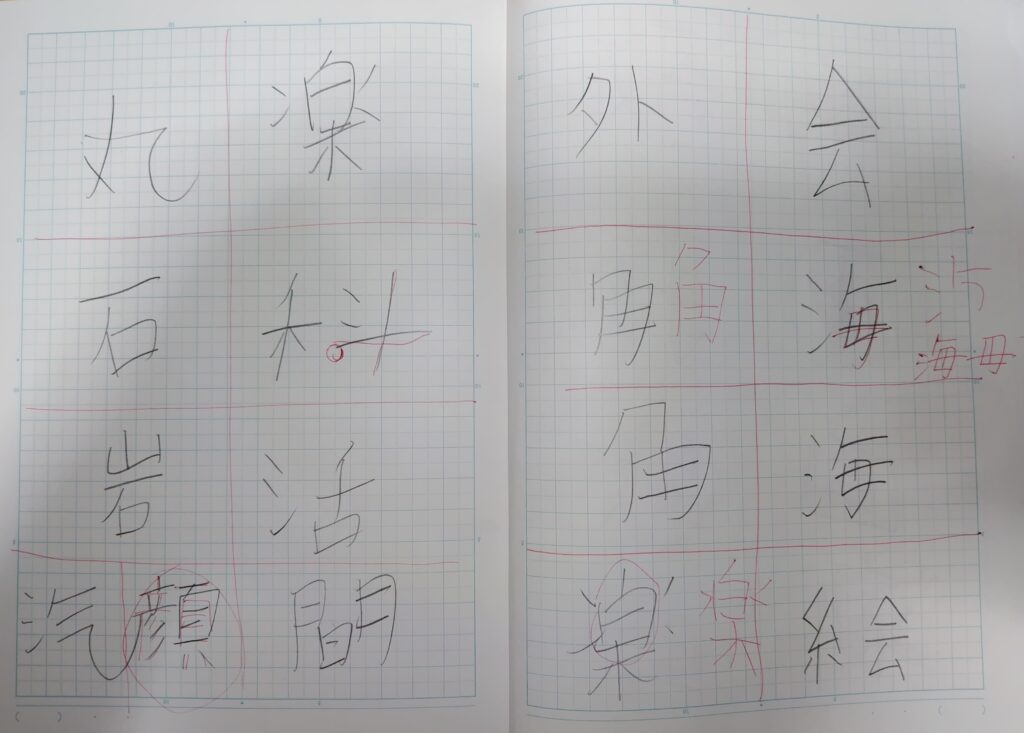 丸 楽
石 科
岩 活
汽 顔 間
外 会
角 角 海
海 毋
角 海
楽 楽 絵